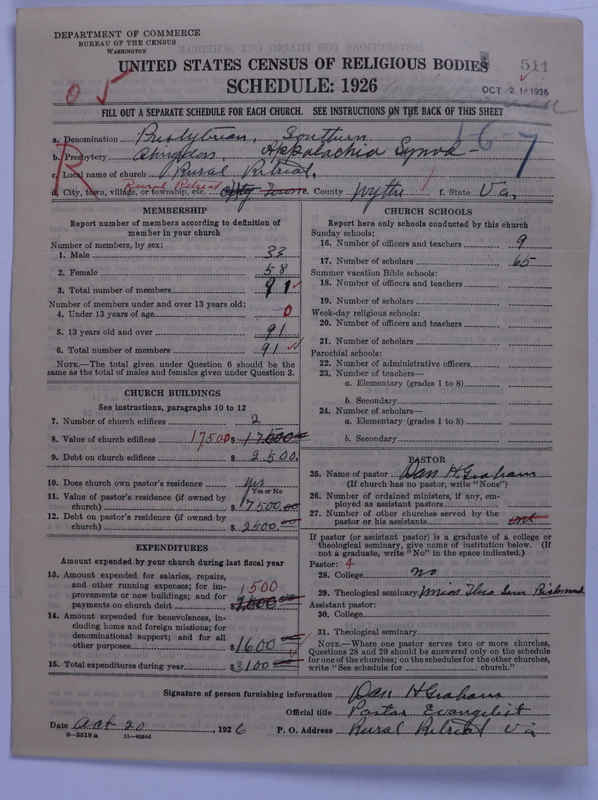 DEPARTMENT OF COMMERCE
BUREAU OF THE CENSUS
WASHINGTON
UNITED STATES CENSUS OF RELIGIOUS BODIES
511
SCHEDULE: 1926
OCT 21 1926
FILL OUT A SEPARATE SCHEDULE FOR EACH CHURCH. SEE INSTRUCTIONS ON THE BACK OF THIS SHEET
167
R
a. Denomination Presbyterian, Southern
b. Presbytery Abingdon Appalachia Synod
c. Local name of church Rural Retreat,
d. City, town, village, or township, etc. Rural Retreat County Wythe f. State Va,
MEMBERSHIP
Report number of members according to definition of member in your church
Number of members, by sex:
1. Male 33
2. Female 58
3. Total number of members 91
Number of members under and over 13 years old:
4. Under 13 years of age 0
5. 13 years old and over 91
6. Total number of members 91
NOTE.—The total given under Question 6 should be the same as the total of males and females given under Question 3.
CHURCH BUILDINGS
See instructions, paragraphs 10 to 12
7. Number of church edifices 2
8. Value of church edifices 17500 $ 17500.00
9. Debt on church edifices $ 2500.
10. Does church own pastor's residence yes
Yes or No
11. Value of pastor's residence (if owned by church) $ 7500.00
12. Debt on pastor's residence (if owned by church) $ 2600.00
EXPENDITURES
Amount expended by your church during last fiscal year
13. Amount expended for salaries, repairs, and other running expenses; for improvements or new buildings; and for payments on church debt 1500
14. Amount expended for benevolences, including home and foreign missions; for denominational support; and for all other purposes $ 1600.00
15. Total expenditures during year $ 3100
CHURCH SCHOOLS
Report here only schools conducted by this church
Sunday schools:
16. Number of officers and teachers 9
17. Number of scholars 65
Summer vacation Bible schools:
18. Number of officers and teachers
19. Number of scholars
Week-day religious schools:
20. Number of officers and teachers
21. Number of scholars
Parochial schools:
22. Number of administrative officers
23. Number of teachers—
a. Elementary (grades 1 to 8)
b. Secondary
24. Number of scholars—
a. Elementary (grades 1 to 8)
b. Secondary
PASTOR
25. Name of pastor Dan H Graham
(If church has no pastor, write "None")
26. Number of ordained ministers, if any, employed as assistant pastors
27. Number of other churches served by the pastor or his assistants
If pastor (or assistant pastor) is a graduate of a college or theological seminary, give name of institution below. (If not a graduate, write "No" in the space indicated.)
Pastor: 4
28. College no
29. Theological seminary Union Theo. Sem. Richmond
Assistant pastor:
30. College
31. Theological seminary
NOTE.—Where one pastor serves two or more churches, Questions 28 and 29 should be answered only on the schedule for one of the churches; on the schedules for the other churches, write "See schedule for ........ church."
Signature of person furnishing information Dan H Graham
Official title Pastor Evangelist
Date Oct 20, 1926 P. O. Address Rural Retreat Va